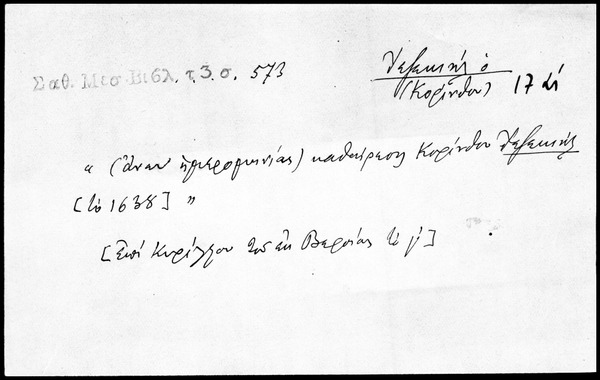 Σαθ. Μεσ. Βιβλ. τ. 3. σ. 573
Ἰεζεκιήλ ὁ
(Κορίνθου) 17 αἰ
« (ἄνευ ἡμερομηνίας) καθαίρεσις Κορίνθου Ἰεζεκιήλ
[τῷ 1638] »
[Ἐπί Κυρίλλου τοῦ ἐκ Βεροίας τό γ΄]